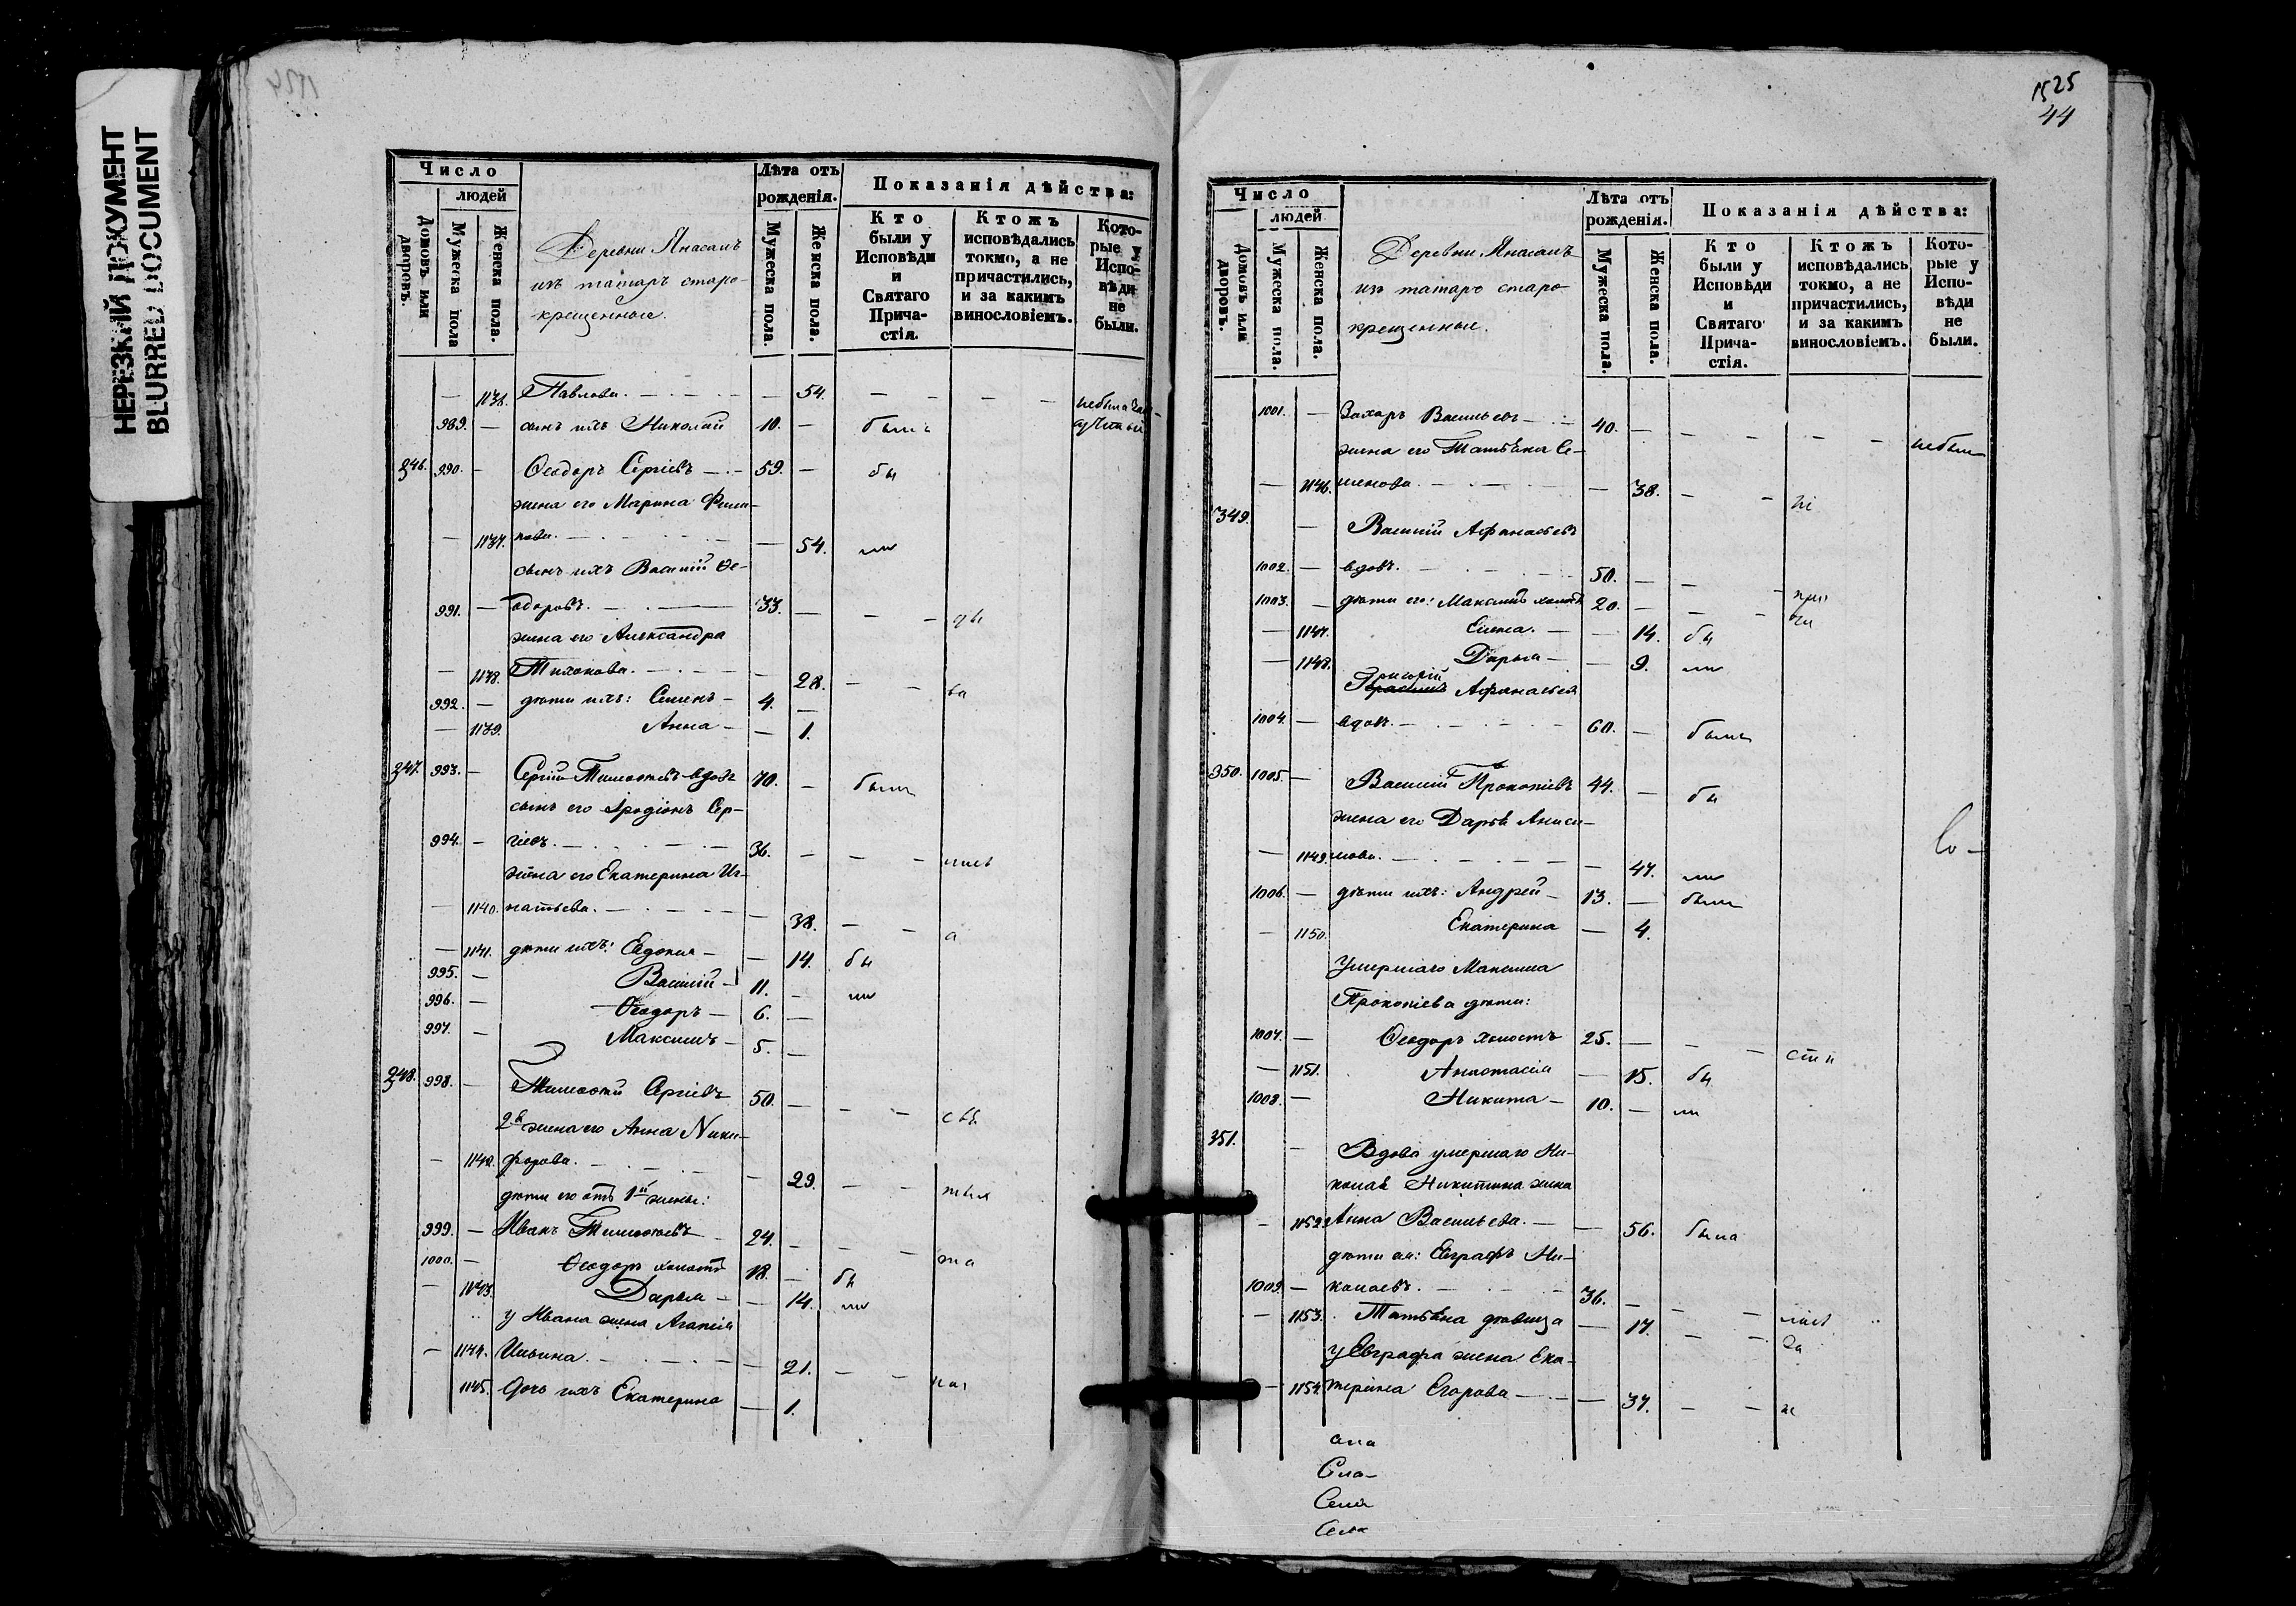 НЕРЕЗКИЙ ДОКУМЕНТ
BLURRED DOCUMENT
Число
людей
Домовъ или дворовъ.
Мужеска пола
Женска пола.
Деревни Янасалъ
изъ татаръ старо-
крещенные.
Лѣта отъ рожденія.
Мужеска пола.
Женска пола.
Показанія дѣйства:
Кто были у Исповѣди и Святаго Прича-стія.
Ктожъ исповѣдались токмо, а не причастились, и за какимъ винословіемъ.
Кото-рые у Испо-вѣди не были.
— 1136. Павлова. — — 54. — — — —
989. — сынъ ихъ Николай 10. — былъ
346. 990. — Ѳеодоръ Сергіевъ — 59. — бы
жена его Марина Фили-
— 1137. пова. — — 54. ли
сынъ ихъ Василій Ѳе-
991. — одоровъ. — 33. — — —
жена его Александра
— 1138. Тихонова. — — 28. — —
992. — дѣти ихъ: Семенъ — 4. —
— 1139. Анна — — 1.
347. 993. — Сергій Тимоѳеевъ вдовъ 70. — былъ
сынъ его Иродіонъ Сер-
994. — гіевъ. — 36. — — —
жена его Екатерина Иг-
— 1140. натьева. — — 38. — —
— 1141. дѣти ихъ: Евдокія — — 14. бы
995. — Василій — 11. — ли
996. — Ѳеодоръ — 6. —
997. — Максимъ — 5. —
348. 998. — Тимоѳей Сергіевъ 50. — — —
2я жена его Анна Ники-
— 1142. форова. — — 29. — —
дѣти его отъ 1й жены:
999. — Иванъ Тимоѳеевъ — 24. — — —
1000. — Ѳеодоръ холостъ 18. — бы
— 1143. Дарья — — 14. ли
у Ивана жена Агапія
— 1144. Ильина. — — 21. — —
1145. дочь ихъ Екатерина — 1.
1525
44
Число
людей
Домовъ или дворовъ.
Мужеска пола.
Женска пола.
Деревни Янасалъ
изъ татаръ старо-
крещенные.
Лѣта отъ рожденія.
Мужеска пола.
Женска пола.
Показанія дѣйства:
Кто были у Исповѣди и Святаго Прича-стія.
Ктожъ исповѣдались токмо, а не причастились, и за какимъ винословіемъ.
Кото-рые у Испо-вѣди не были.
1001. — Захаръ Васильевъ — 40. — — — — — небыли
жена его Татьяна Се-
— 1146. менова. — — 38. — —
349. — Василій Афанасьевъ
1002. — вдовъ. — 50. — — —
1003. — дѣти его: Максимъ холостъ 20. — — —
— 1147. Елена. — — 14. бы
— 1148. Дарья — — 9. ли
Григорій Афанасьевъ
1004. — вдовъ. — 60. — былъ
350. 1005. — Василій Прокопіевъ 44. — бы
жена его Дарья Аниси-
— 1149. мова. — — 47. ли
1006. — дѣти ихъ: Андрей — 13. — былъ
— 1150. Екатерина — 4.
Умершаго Максима
Прокопіева дѣти:
1007. — Ѳеодоръ холостъ 25. — — —
— 1151. Анастасія — 15. бы
1008. — Никита — 10. — ли
351. — Вдова умершаго Ни-
колая Никитина жена
— 1152. Анна Васильева. — — 56. была
дѣти ея: Евграфъ Ни-
1009. — колаевъ. — 36. — — —
— 1153. Татьяна дѣвица — 17. — —
у Евграфа жена Ека-
— 1154. терина Егорова — — 37. — —